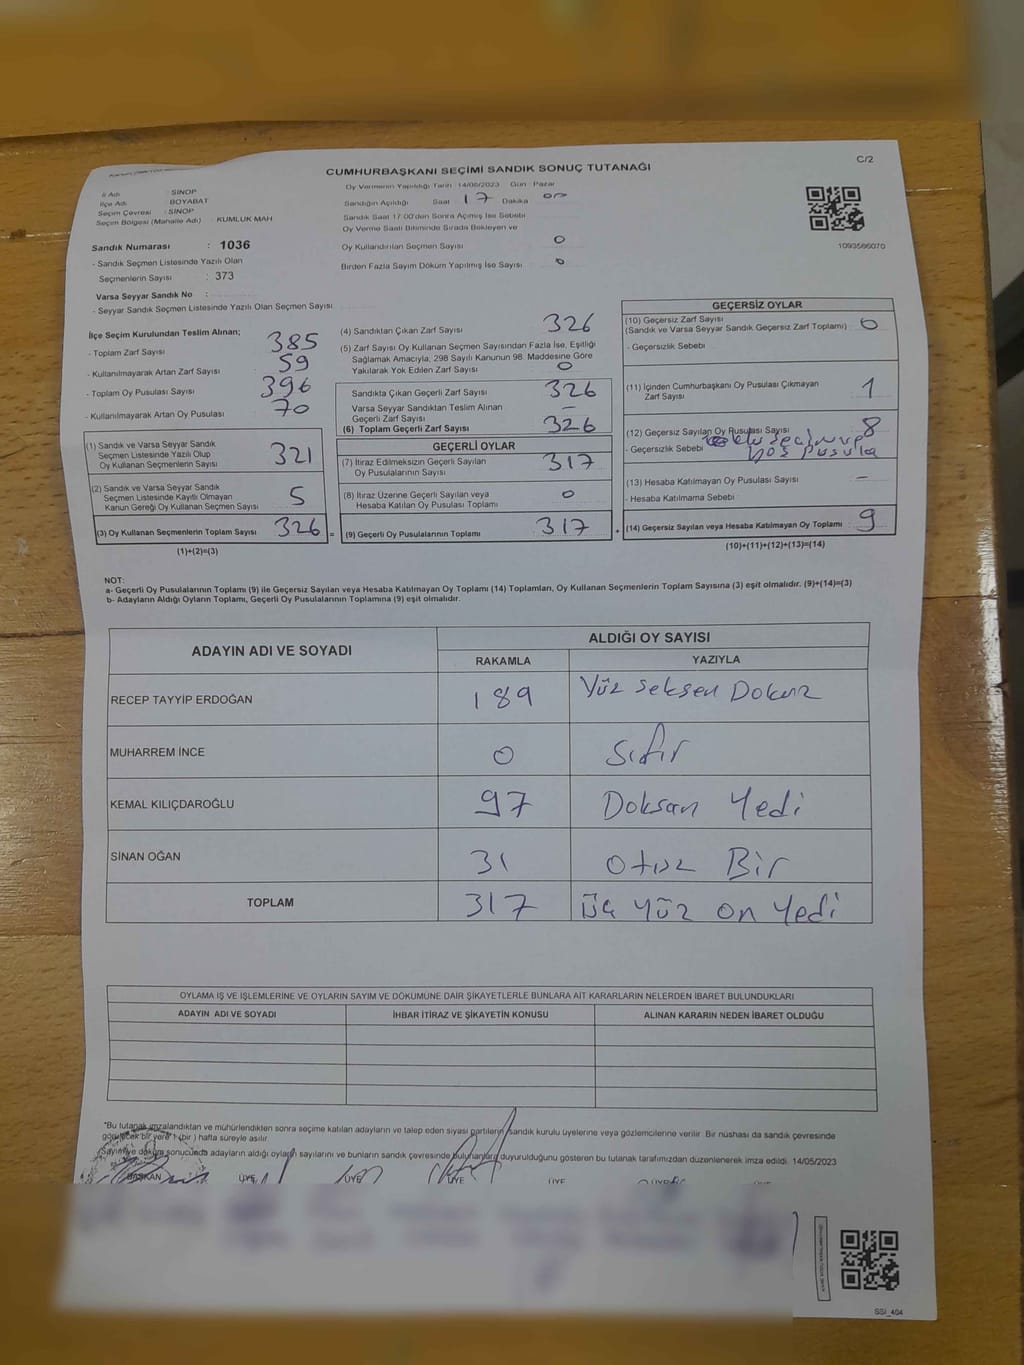 C/2
CUMHURBAŞKANI SEÇİMİ SANDIK SONUÇ TUTANAĞI
İl Adı : SİNOP
İlçe Adı : BOYABAT
Seçim Çevresi : SİNOP
Seçim Bölgesi (Mahalle Adı) : KUMLUK MAH
Oy Vermenin Yapıldığı Tarih 14/05/2023 Gün : Pazar
Sandığın Açıldığı Saat 17 Dakika 00
Sandık Saat 17:00'den Sonra Açılmış İse Sebebi
Oy Verme Saati Bitiminde Sırada Bekleyen ve
Oy Kullandırılan Seçmen Sayısı 0
Birden Fazla Sayım Döküm Yapılmış İse Sayısı 0
1093566070
Sandık Numarası : 1036
- Sandık Seçmen Listesinde Yazılı Olan
Seçmenlerin Sayısı : 373
Varsa Seyyar Sandık No :
- Seyyar Sandık Seçmen Listesinde Yazılı Olan Seçmen Sayısı
İlçe Seçim Kurulundan Teslim Alınan;
- Toplam Zarf Sayısı 385
- Kullanılmayarak Artan Zarf Sayısı 59
- Toplam Oy Pusulası Sayısı 396
- Kullanılmayarak Artan Oy Pusulası 70
(1) Sandık ve Varsa Seyyar Sandık
Seçmen Listesinde Yazılı Olup
Oy Kullanan Seçmenlerin Sayısı 321
(2) Sandık ve Varsa Seyyar Sandık
Seçmen Listesinde Kayıtlı Olmayan
Kanun Gereği Oy Kullanan Seçmen Sayısı 5
(3) Oy Kullanan Seçmenlerin Toplam Sayısı 326 =
(1)+(2)=(3)
(4) Sandıktan Çıkan Zarf Sayısı 326
(5) Zarf Sayısı Oy Kullanan Seçmen Sayısından Fazla İse, Eşitliği
Sağlamak Amacıyla, 298 Sayılı Kanunun 98. Maddesine Göre
Yakılarak Yok Edilen Zarf Sayısı 0
Sandıkta Çıkan Geçerli Zarf Sayısı 326
Varsa Seyyar Sandıktan Teslim Alınan
Geçerli Zarf Sayısı —
(6) Toplam Geçerli Zarf Sayısı 326
GEÇERLİ OYLAR
(7) İtiraz Edilmeksizin Geçerli Sayılan
Oy Pusulalarının Sayısı 317
(8) İtiraz Üzerine Geçerli Sayılan veya
Hesaba Katılan Oy Pusulası Toplamı 0
(9) Geçerli Oy Pusulalarının Toplamı 317 +
GEÇERSİZ OYLAR
(10) Geçersiz Zarf Sayısı
(Sandık ve Varsa Seyyar Sandık Geçersiz Zarf Toplamı) 0
- Geçersizlik Sebebi
(11) İçinden Cumhurbaşkanı Oy Pusulası Çıkmayan
Zarf Sayısı 1
(12) Geçersiz Sayılan Oy Pusulası Sayısı 8
- Geçersizlik Sebebi
Boş Pusula
(13) Hesaba Katılmayan Oy Pusulası Sayısı —
- Hesaba Katılmama Sebebi
(14) Geçersiz Sayılan veya Hesaba Katılmayan Oy Toplamı 9
(10)+(11)+(12)+(13)=(14)
NOT:
a- Geçerli Oy Pusulalarının Toplamı (9) ile Geçersiz Sayılan veya Hesaba Katılmayan Oy Toplamı (14) Toplamları, Oy Kullanan Seçmenlerin Toplam Sayısına (3) eşit olmalıdır. (9)+(14)=(3)
b- Adayların Aldığı Oyların Toplamı, Geçerli Oy Pusulalarının Toplamına (9) eşit olmalıdır.
ADAYIN ADI VE SOYADI
ALDIĞI OY SAYISI
RAKAMLA YAZIYLA
RECEP TAYYİP ERDOĞAN 189 Yüz Seksen Dokuz
MUHARREM İNCE 0 Sıfır
KEMAL KILIÇDAROĞLU 97 Doksan Yedi
SİNAN OĞAN 31 Otuz Bir
TOPLAM 317 Üç Yüz On Yedi
OYLAMA İŞ VE İŞLEMLERİNE VE OYLARIN SAYIM VE DÖKÜMÜNE DAİR ŞİKAYETLERLE BUNLARA AİT KARARLARIN NELERDEN İBARET BULUNDUKLARI
ADAYIN ADI VE SOYADI İHBAR İTİRAZ VE ŞİKAYETİN KONUSU ALINAN KARARIN NEDEN İBARET OLDUĞU
"Bu tutanak imzalandıktan ve mühürlendikten sonra seçime katılan adayların ve talep eden siyasi partilerin sandık kurulu üyelerine veya gözlemcilerine verilir. Bir nüshası da sandık çevresinde
görülecek bir yere 1 (bir) hafta süreyle asılır
Sayım ve döküm sonucunda adayların aldığı oyların sayılarını ve bunların sandık çevresinde bulunanlara duyurulduğunu gösteren bu tutanak tarafımızdan düzenlenerek imza edildi. 14/05/2023
BAŞKAN ÜYE ÜYE ÜYE ÜYE ÜYE
SSİ_404